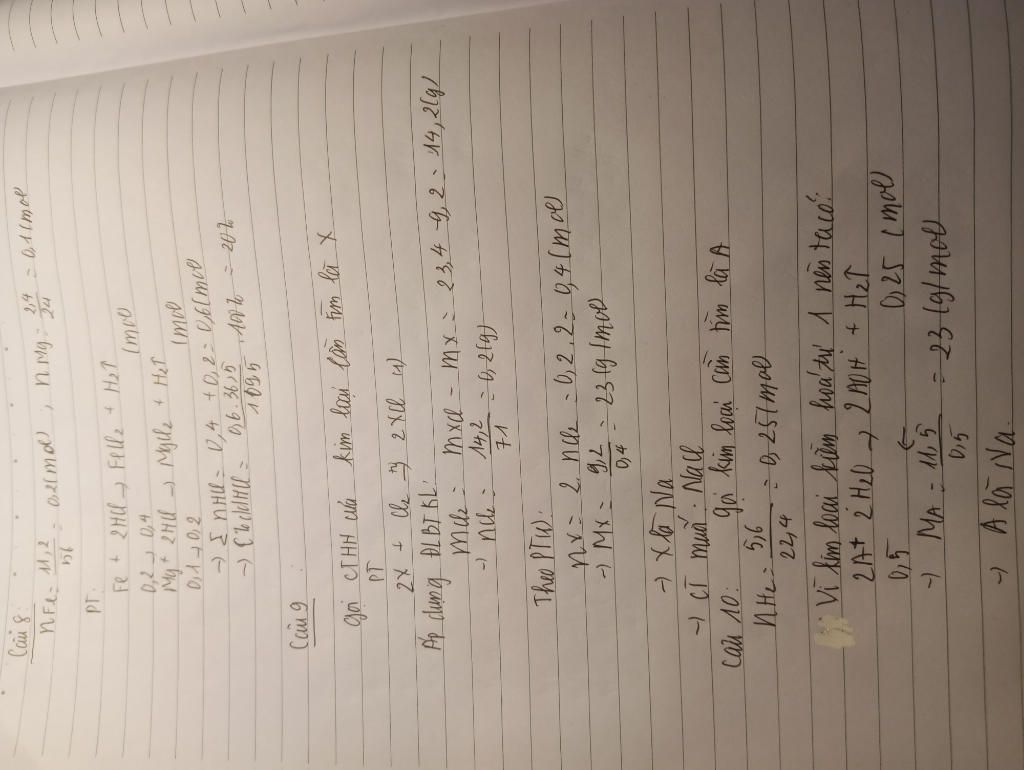 Câu 8:
nFe = 11,2/56 = 0,2 (mol) ; nMg = 2,4/24 = 0,1 (mol)
PT:
Fe + 2HCl → FeCl2 + H2↑
0,2 → 0,4 (mol)
Mg + 2HCl → MgCl2 + H2↑
0,1 → 0,2 (mol)
→ Σ nHCl = 0,4 + 0,2 = 0,6 (mol)
→ C% ddHCl = 0,6.36,5/109,5 .100% = 20%
Câu 9:
gọi CTHH của kim loại cần tìm là X
PT
2X + Cl2 → 2XCl (1)
Áp dụng ĐLBTKL:
mCl2 = mXCl - mX = 23,4 - 9,2 = 14,2 (g)
→ nCl2 = 14,2/71 = 0,2 (g)
Theo PT(1):
nX = 2 nCl2 = 0,2.2 = 0,4 (mol)
→ MX = 9,2/0,4 = 23 (g/mol)
→ X là Na
→ CT muối: NaCl
Câu 10: gọi kim loại cần tìm là A
nH2 = 5,6/22,4 = 0,25 (mol)
Vì kim loại kiềm hoá trị 1 nên ta có:
2A + 2H2O → 2AOH + H2↑
0,5 ← 0,25 (mol)
→ MA = 11,5/0,5 = 23 (g/mol)
→ A là Na.